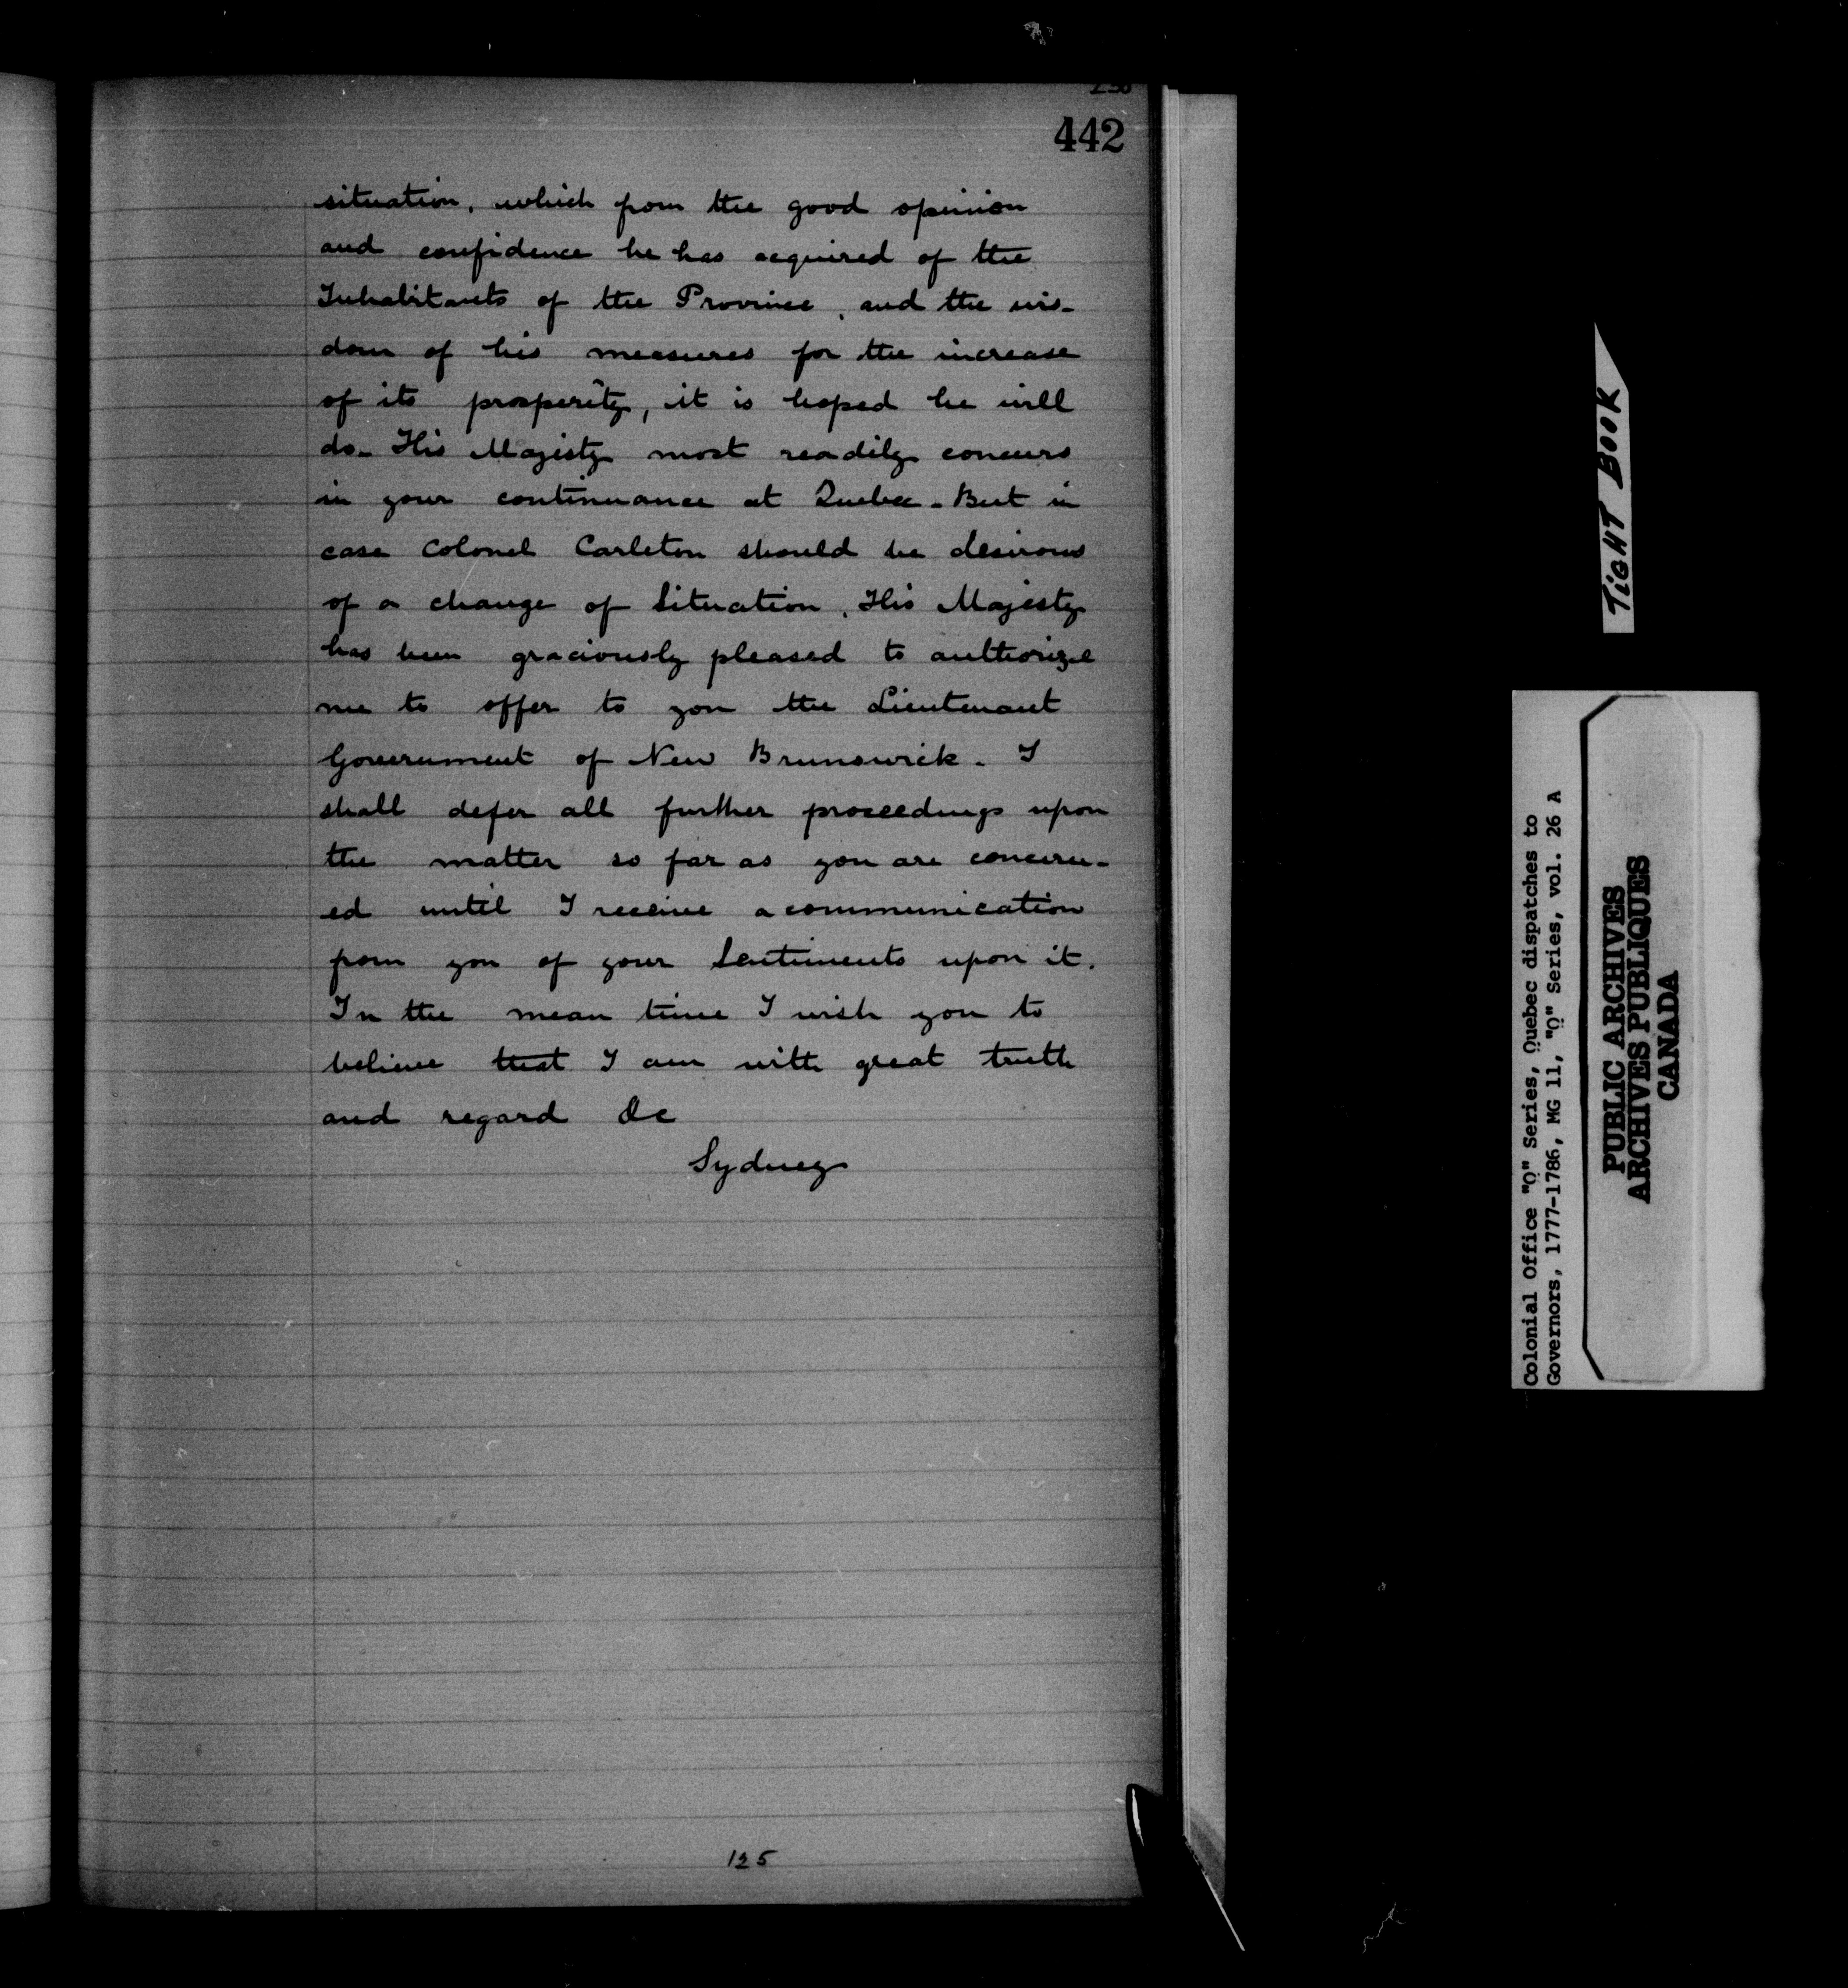 442
situation, which from the good opinion
and confidence he has acquired of the
Inhabitants of the Province, and the wis-
dom of his measures for the increase
of its prosperity, it is hoped he will
do. His Majesty most readily concurs
in your continuance at Quebec. But in
case Colonel Carleton should be desirous
of a change of Situation, His Majesty
has been graciously pleased to authorize
me to offer to you the Lieutenant
Government of New Brunswick. I
shall defer all further proceedings upon
the matter so far as you are concern-
ed until I receive a communication
from you of your Sentiments upon it.
In the mean time I wish you to
believe that I am with great truth
and regard &c
Sydney
125
TIGHT BOOK
Colonial Office "Q" Series, Quebec dispatches to
Governors, 1777-1786, MG 11, "Q" Series, vol. 26 A
PUBLIC ARCHIVES
ARCHIVES PUBLIQUES
CANADA